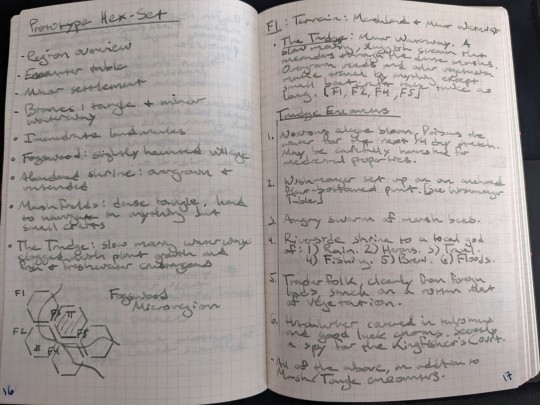 Prototype Hex-Set
- Region overview
- Encounter table
- Minor settlement
- Biomes: 1 tangle & minor
waterway
• Immediate landmarks
• Fogswood: slightly haunted village
• Abandoned shrine: overgrown &
untended
• Marshfields: dense tangle, hard
to navigate in anything but
small crafts
• The Trudge: slow marshy waterway
clogged with plant growth and
fish & freshwater
F1
F2
F3
F4
F5
Fogswood
Microregion
16
F1: Terrain: Marshland & Minor Waterway
• The Trudge: Minor Waterway. A
slow marshy, sluggish stream that
meanders through the dense marshes.
Overgrown reeds and other vegetation
make travel by anything except
small boats take twice as
long. [F1, F2, F4, F5]
Trudge Encounters
1. Noxious algae bloom. Poisons the
water for the next day.
May be carefully harvested for
medicinal properties.
2. set up on an anchored
punt. [See
Table]
3. Angry swarm of marsh bees.
4. Riverside shrine to a local god
of: 1) Rain. 2) Herons. 3) Travel.
4) Fishing. 5) Beer. 6) Floods.
5. Trader folk, clearly from foreign
, stuck on a rotten mat
of vegetation.
6. covered in talismans
and good luck charms. Secretly
a spy for the Kingfisher's Court.
- All of the above, in addition to
Marsh Tangle encounters.
17